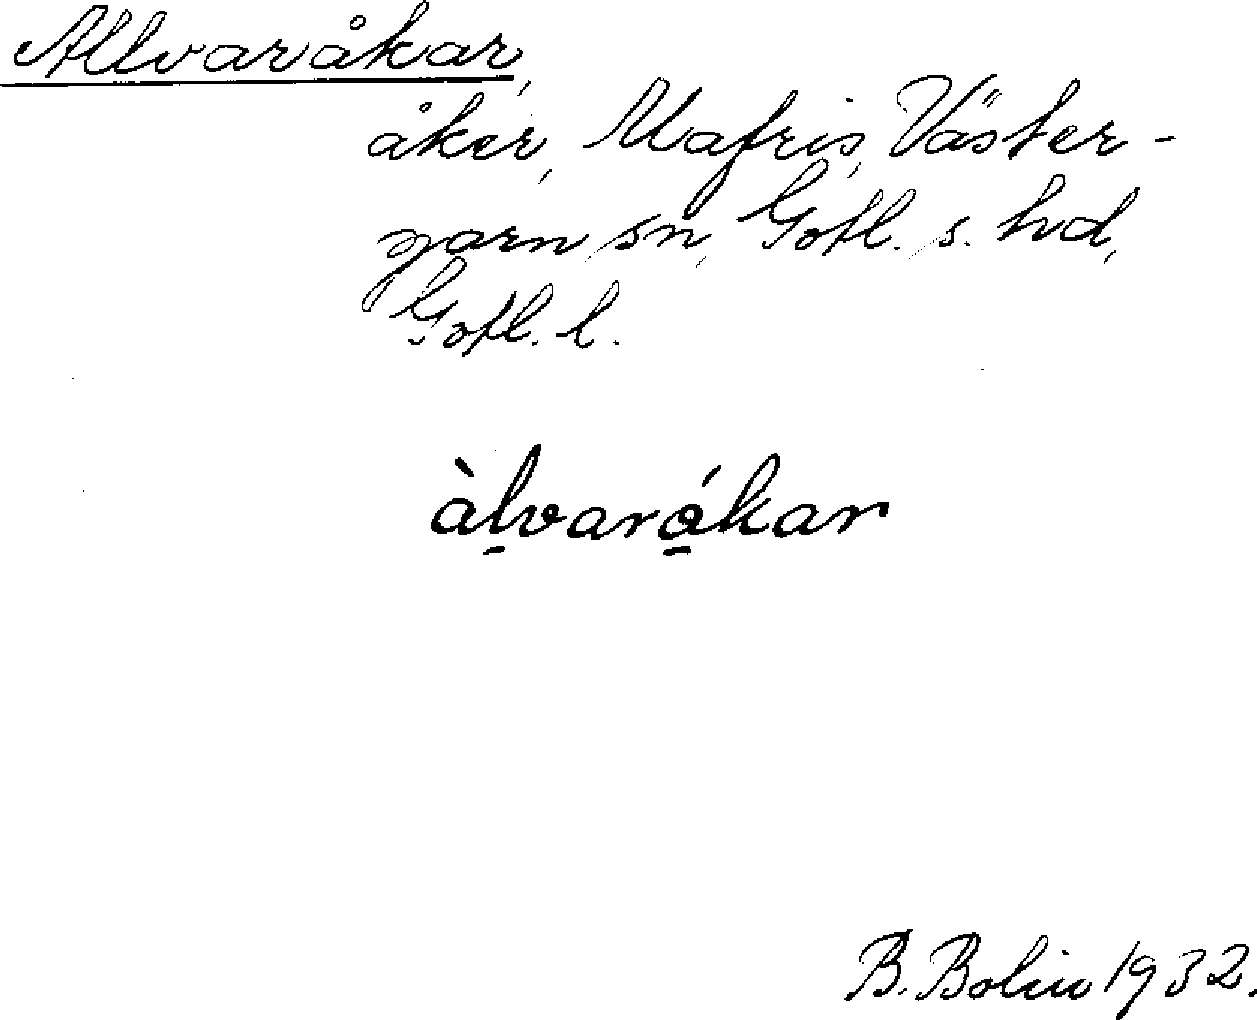 Allvaråkar,
åker, Mafris, Väster-
garn sn, Gotl. s. hd,
Gotl. l.
àl̠varó̠kar
B. Bolin 1932.